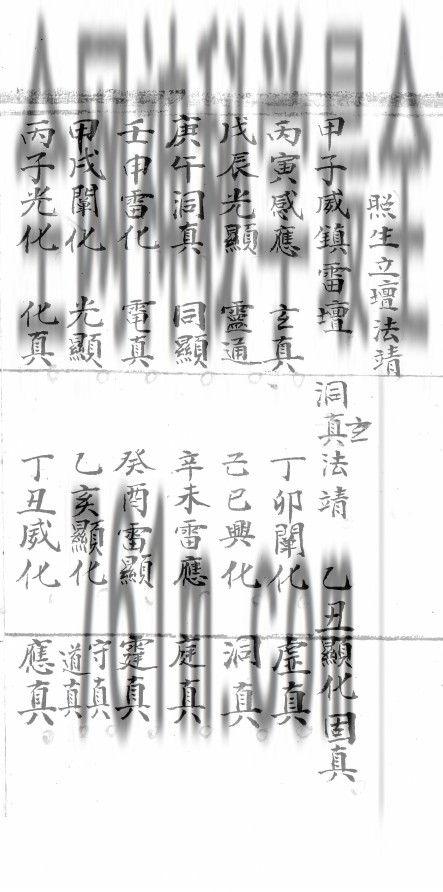 照生立壇法靖
甲子威鎮雷壇 洞玄真法靖 乙丑顯化固真
丙寅感應 玄真 丁卯闡化 虛真
戊辰光顯 靈通 己巳興化 洞真
庚午洞真 同顯 辛未雷應 庭真
壬申雷化 電真 癸酉雷顯 霆真
甲戌闡化 光顯 乙亥顯化 守真 道真
丙子光化 化真 丁丑威化 應真